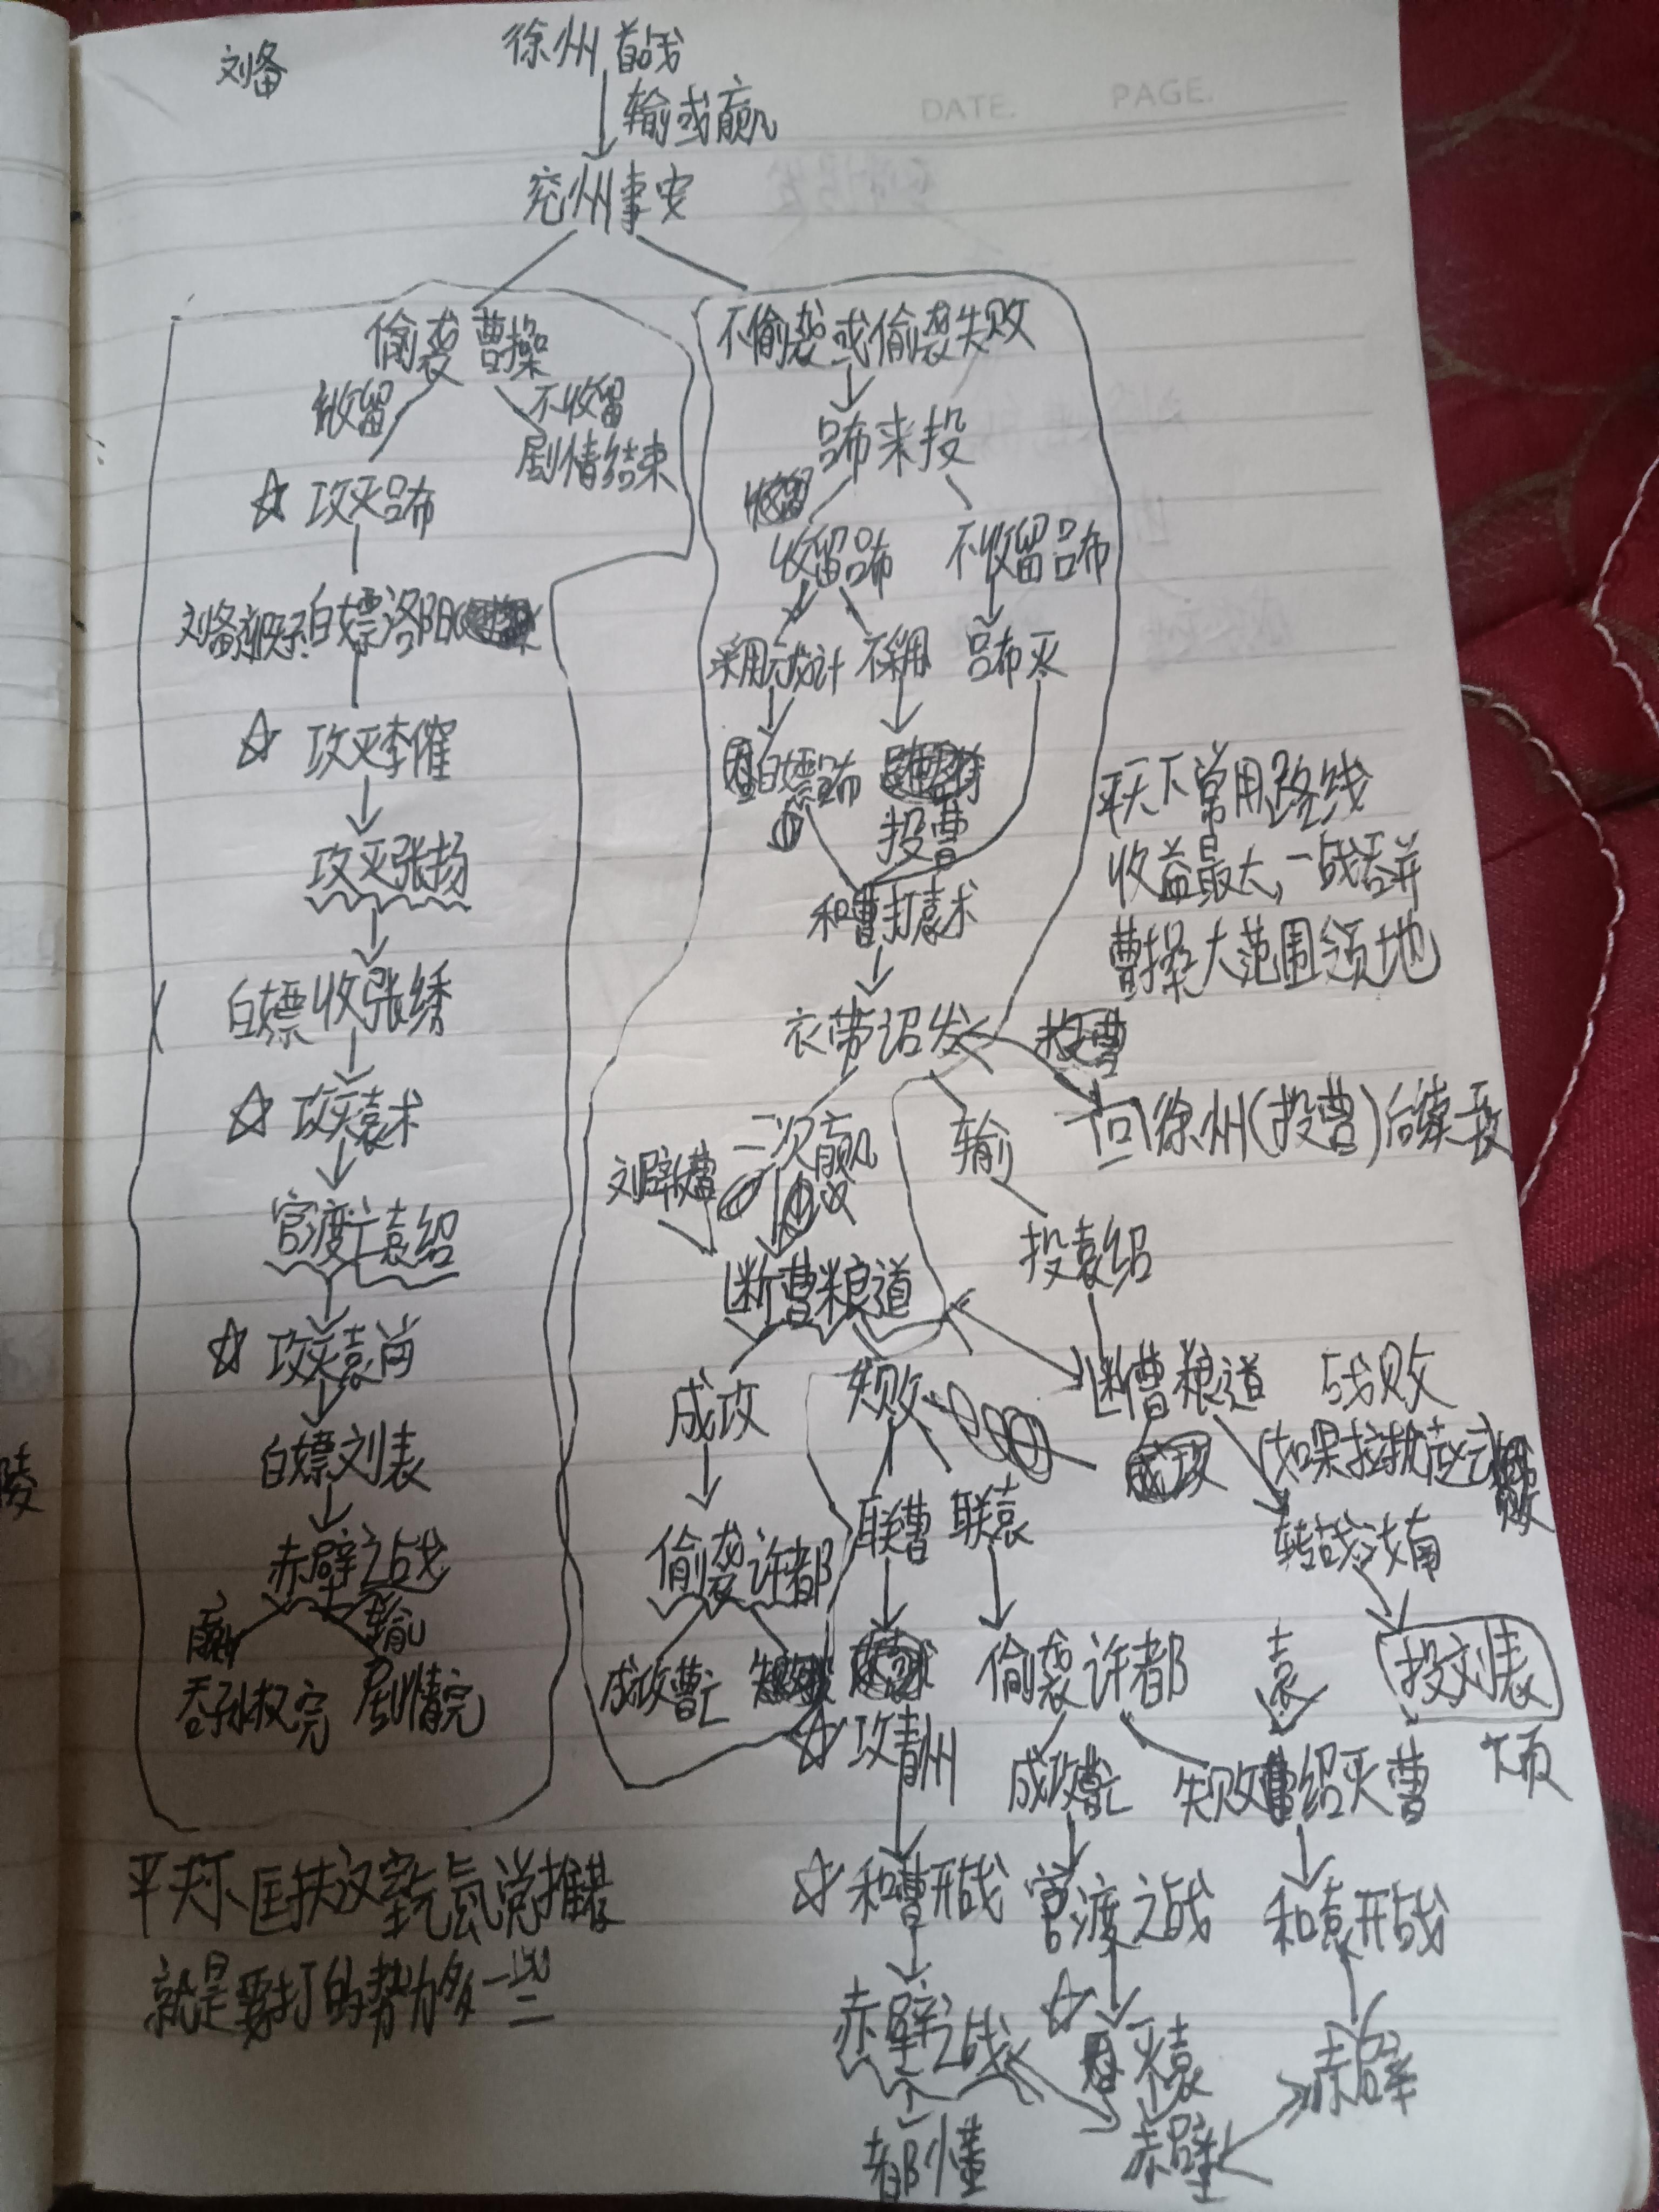 刘备
徐州首战
DATE. PAGE.
输或赢
兖州事变
偷袭曹操
收留
不收留
剧情结束
☆ 攻灭吕布
白嫖洛阳
☆ 攻灭李傕
攻灭张扬
白嫖收张绣
☆ 攻灭袁术
官渡亡袁绍
☆ 攻灭袁尚
白嫖刘表
赤壁之战
赢
输
吞孙权完
剧情完
平天下、匡扶汉室
就是要打的势力多一些
不偷袭或偷袭失败
吕布来投
收留吕布
不收留吕布
采用 计
不采用
吕布灭
白嫖吕布
投曹
和曹打袁术
衣带诏发
平天下常用路线
收益最大,一战吞并
曹操大范围领地
回徐州(投曹)后续一致
二次赢
输
投袁绍
断曹粮道
成攻
失败
偷袭许都
成攻曹亡
断曹粮道
战败
转战汝南
投刘表
下页
联曹
联袁
☆ 攻青州
☆ 和曹开战
赤壁之战
都懂
偷袭许都
成攻曹亡
官渡之战
☆ 灭袁
赤壁
袁
失败 绍灭曹
和袁开战
赤壁
陵